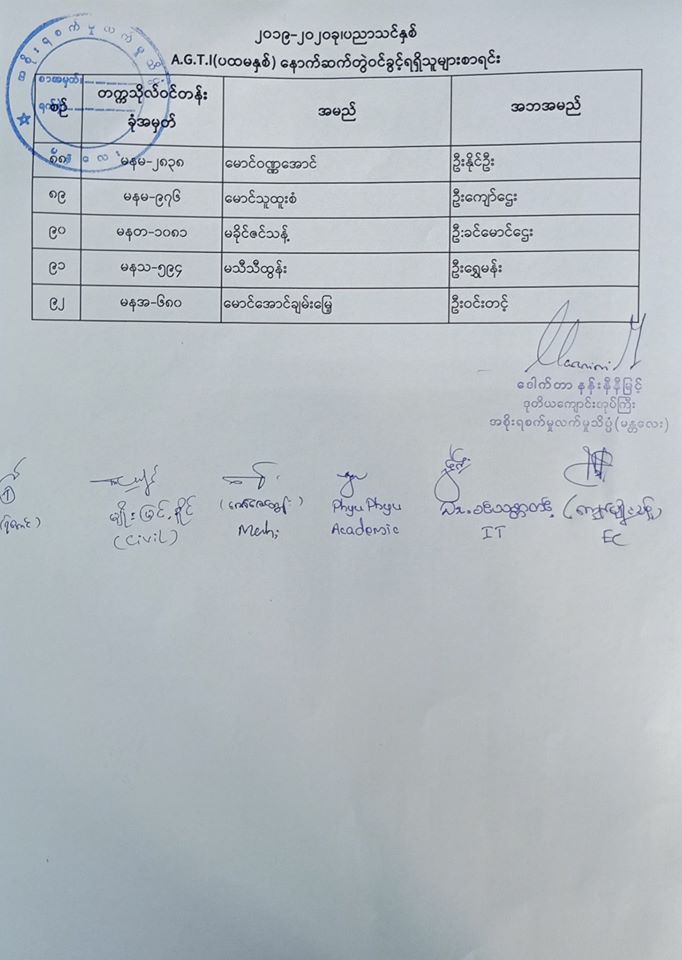 ၂၀၁၉-၂၀၂၀ခုပညာသင်နှစ်
A.G.T.I(ပထမနှစ်) နောက်ဆက်တွဲဝင်ခွင့်ရရှိသူများစာရင်း
စဉ် တက္ကသိုလ်ဝင်တန်း ခုံအမှတ် အမည် အဘအမည်
၈၈ မနမ-၂၈၃၈ မောင်ဝဏ္ဏအောင် ဦးနိုင်ဦး
၈၉ မနမ-၉၇၆ မောင်သူထူးစံ ဦးကျော်ဌေး
၉၀ မနတ-၁၀၈၁ မခိုင်ဇင်သန့် ဦးခင်မောင်ဌေး
၉၁ မနသ-၅၉၄ မသီသီထွန်း ဦးရွှေမန်း
၉၂ မနအ-၆၈၀ မောင်အောင်ချမ်းမြေ့ ဦးဝင်းတင့်
ဒေါက်တာ နန်းနီနီမြင့်
ဒုတိယကျောင်းအုပ်ကြီး
အစိုးရစက်မှုလက်မှုသိပ္ပံ(မန္တလေး)
Phyu Phyu
(Civil) Mech; Academic IT EC